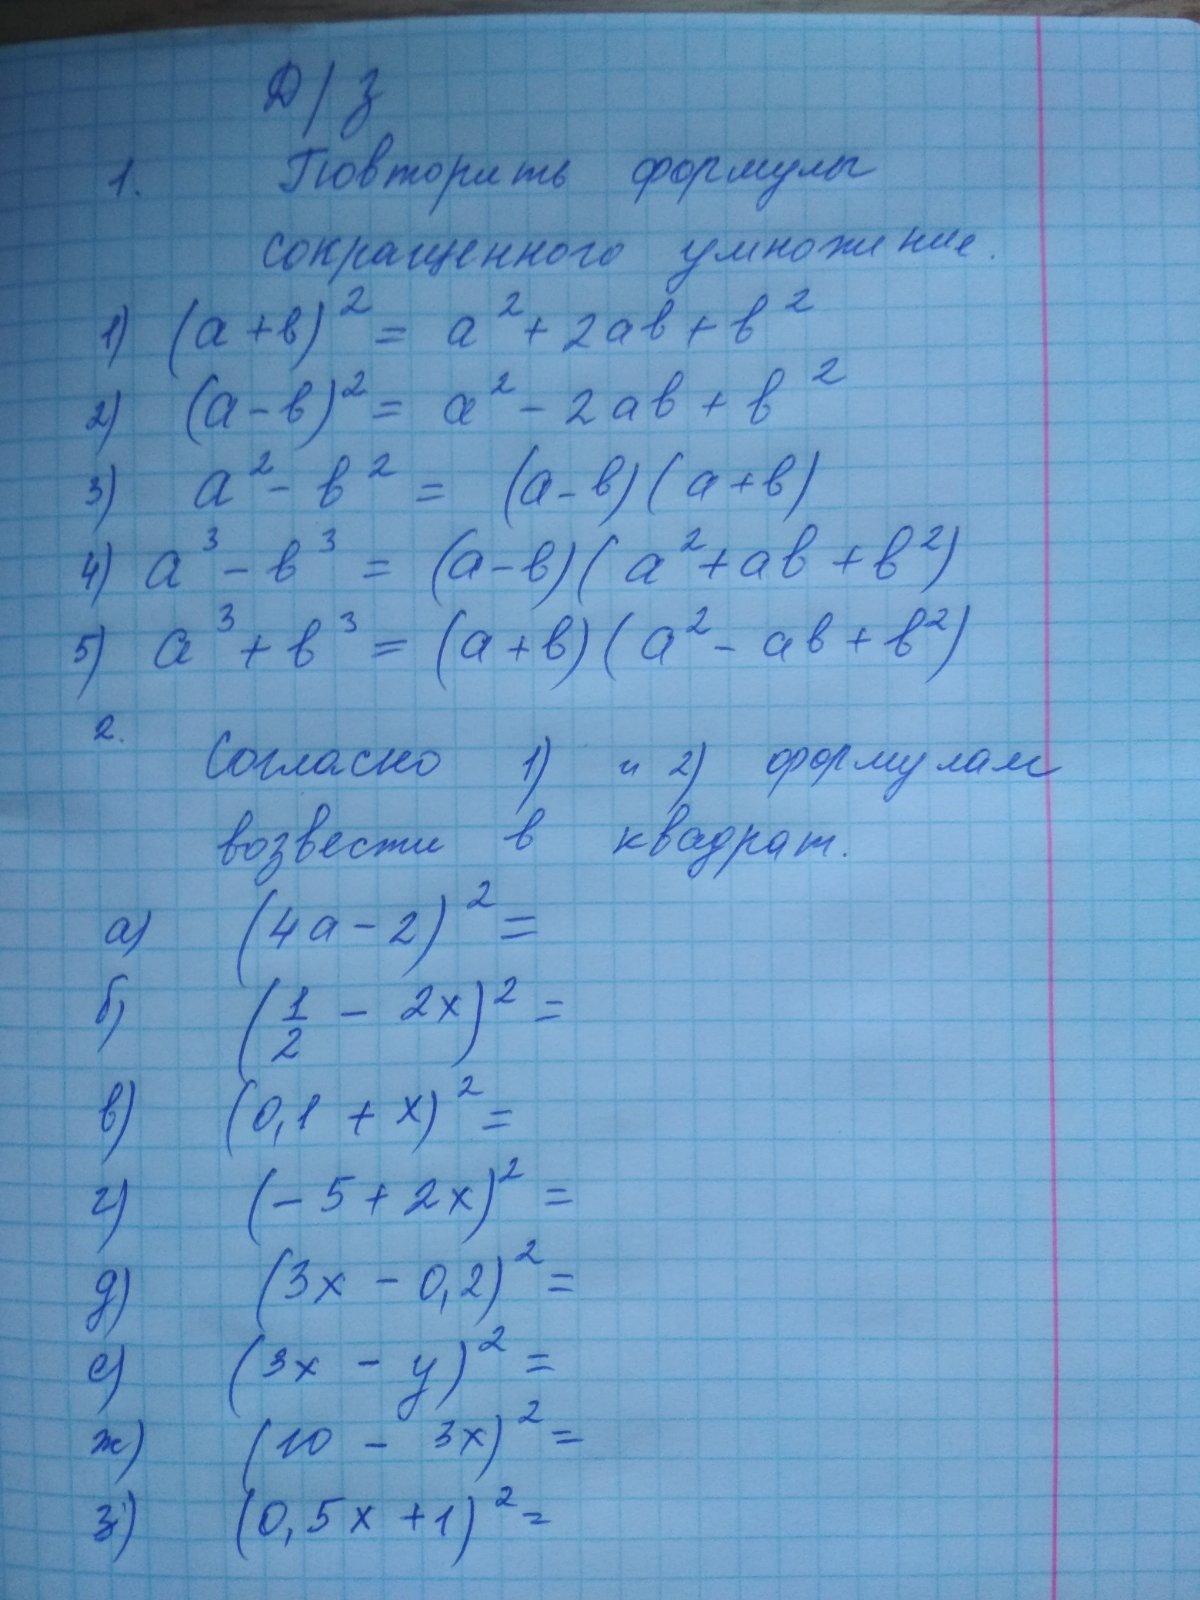 Д/з
1. Повторить формулы
сокращенного умножение.
1) (а+в)² = а² + 2ав + в²
2) (а-в)² = а² - 2ав + в²
3) а² - в² = (а-в)(а+в)
4) а³ - в³ = (а-в)(а²+ав+в²)
5) а³ + в³ = (а+в)(а² - ав + в²)
2. Согласно 1) и 2) формулам
возвести в квадрат.
а) (4а - 2)² =
б) (1/2 - 2х)² =
в) (0,1 + х)² =
г) (- 5 + 2х)² =
д) (3х - 0,2)² =
е) (3х - у)² =
ж) (10 - 3х)² =
з) (0,5х + 1)² =